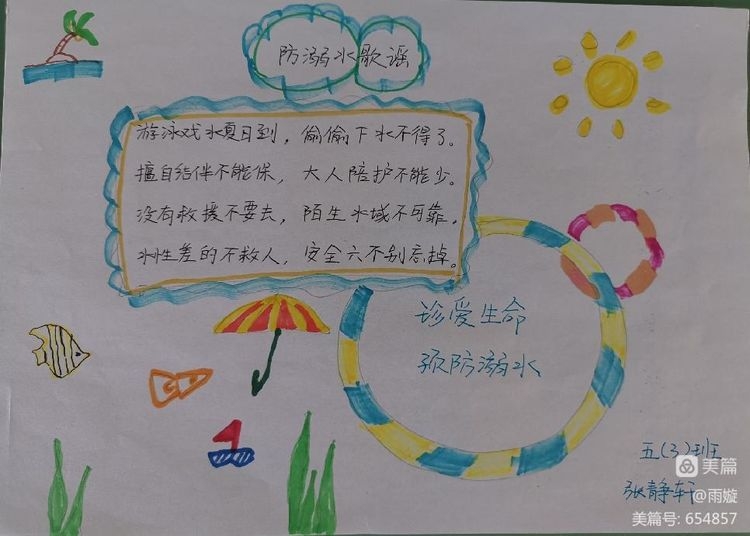 防溺水歌谣
游泳戏水夏日到，偷偷下水不得了。
擅自结伴不能保，大人陪护不能少。
没有救援不要去，陌生水域不可靠，
水性差的不救人，安全六不别忘掉。
珍爱生命
预防溺水
五(3)班
张静轩
美篇
@雨璇
美篇号: 654857